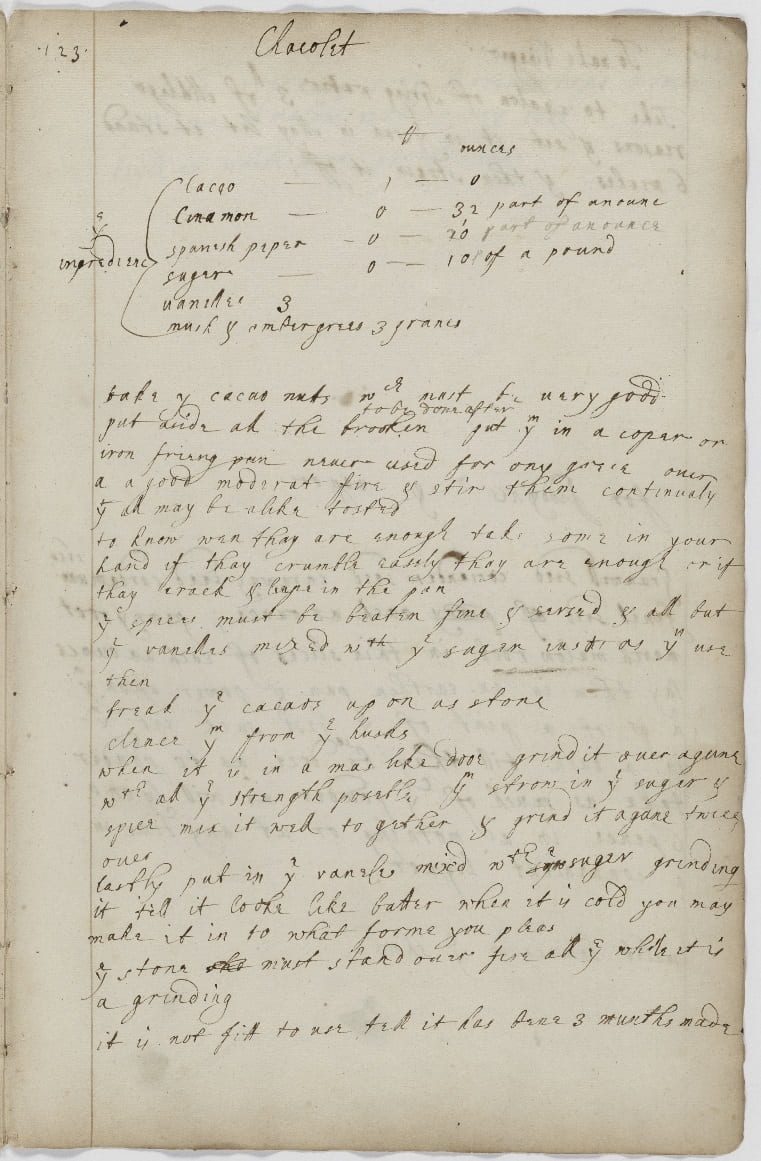 123
Chacolet
tt ounces
Cacao — 1 — 0
Cinamon — 0 — 32 part of anounc
spanish peper — 0 — 20 part of an ounce
ye ingrediene
suger — 0 — 10 of a pound
vanelles 3
musk & ambergrees 3 granes
take ye cacao nuts wch must be uery good
put aside all the brooken to be done after put ym in a coper or
iron frieng pan never used for any greece over
a a good moderat fire & stir them continualy
yt all may be alike tosted
to know wen thay are enough take some in your
hand if thay crumble eassly thay are enough or if
thay crack & leape in the pan
ye spices must be beaten fine & earsed & all but
ye vanelles mixed wth ye sugar iust as yu use
then
break ye cacaos upon as stone
clence ym from ye husks
when it is in a mas like dooe grind it ouer agane
wth all ye strength poseble yn strow in ye sugar &
spice mix it well to gether & grind it agane twice
ouer
lastly put in ye vaneles mixed wth ye suger grinding
it tell it looke like batter when it is cold you may
make it in to what forme you pleas
ye stone must stand ouer fire all ye while it is
a grinding
it is not fitt to use tell it has bene 3 munths made